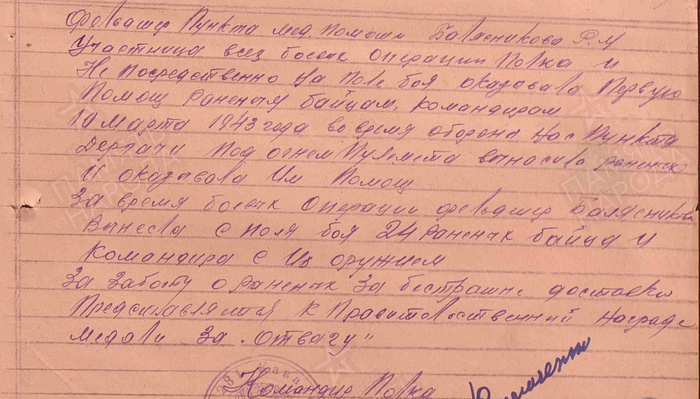 Фельдшер Пункта мед. помощи Балясникова Р.М
Участница всех боевых операции Полка и
Непосредственно на поле боя оказывала Первую
Помощ раненым байцам, командирам
10 марта 1943 года во время обороны нас Пункта
Дергачи под огнем Пулемета выносила раненых
и оказывала им Помощ
За время боевых операции фельдшер Балясников
Вынесла с поля боя 24 раненых байца и
командира с их оружием
За заботу о раненых за бестрашне доставки
Представляется к Правительственный награде
медали За „Отвагу"
Командир Полка